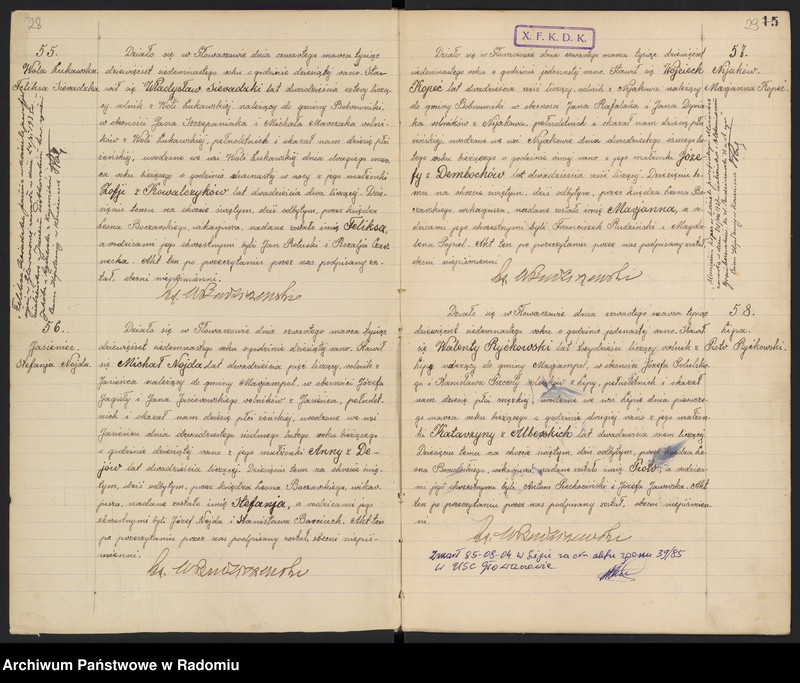 28
55.
Wola Łukawska.
Feliksa Sieradzka
Działo się w Głowaczowie dnia czwartego marca tysiąc
dziewięćset siedemnastego roku o godzinie dziesiątej rano. Sta-
wił się Władysław Sieradzki lat dwadzieścia cztery liczą-
cy, rolnik z Woli Łukawskiej należącej do gminy Bobrowniki,
w obecności Jana Szczepaniaka i Michała Marczaka rolni-
ków z Woli Łukawskiej, pełnoletnich i okazał nam dziecię płci
żeńskiej, urodzone we wsi Woli Łukawskiej dnia drugiego mar-
ca roku bieżącego o godzinie dwunastej w nocy z jego małżonki
Zofji z Kowalczyków lat dwadzieścia dwa liczącej. Dzie-
cięciu temu na chrzcie świętym, dziś odbytym, przez księdza
Leona Boczarskiego, wikarjusza, nadane zostało imię Feliksa,
a rodzicami jego chrzestnymi byli Jan i Rozalja
Akt ten po przeczytaniu przez nas podpisany zo-
stał, obecni niepiśmienni.
56.
Jasieniec.
Stefanja Nojda.
Działo się w Głowaczowie dnia czwartego marca tysiąc
dziewięćset siedemnastego roku o godzinie dziesiątej rano. Stawił
się Michał Nojda lat dwadzieścia pięć liczący, rolnik z
Jasieńca należącego do gminy Marjampol, w obecności Józefa
Jagiełły i Jana rolników z Jasieńca, pełnolet-
nich i okazał nam dziecię płci żeńskiej, urodzone we wsi
Jasieńcu dnia dwudziestego siódmego lutego roku bieżącego
o godzinie dziesiątej rano z jego małżonki Anny z De-
jów lat dwadzieścia liczącej. Dziecięciu temu na chrzcie świę-
tym, dziś odbytym, przez księdza Leona Boczarskiego, wikar-
jusza, nadane zostało imię Stefanja, a rodzicami jego
chrzestnymi byli Józef Nojda i Stanisława Akt ten
po przeczytaniu przez nas podpisany został, obecni niepiś-
mienni.
X. F. K. D. K.
29 15
57.
Nijaków.
Marjanna Kopeć.
Działo się w Głowaczowie dnia czwartego marca tysiąc dziewięćset
siedemnastego roku o godzinie jedenastej rano. Stawił się Wojciech
Kopeć lat dwadzieścia sześć liczący, rolnik z Nijakowa należącego
do gminy Bobrowniki w obecności Jana Rafalskiego i Jana
rolników z Nijakowa, pełnoletnich i okazał nam dziecię płci
żeńskiej, urodzone we wsi Nijakowie dnia dwudziestego ósmego lu-
tego roku bieżącego o godzinie ósmej rano z jego małżonki Józe-
fy z Dembochów lat dwadzieścia sześć liczącej. Dziecięciu te-
mu na chrzcie świętym, dziś odbytym, przez księdza Leona Bo-
czarskiego wikarjusza, nadane zostało imię Marjanna, a ro-
dzicami jego chrzestnymi byli Franciszek i Magda-
lena Akt ten po przeczytaniu przez nas podpisany został
obecni niepiśmienni.
58.
Lipa.
Piotr Ryćkowski.
Działo się w Głowaczowie dnia czwartego marca tysiąc
dziewięćset siedemnastego roku o godzinie jedenastej rano. Stawił
się Walenty Ryćkowski lat trzydzieści liczący, rolnik z
Lipy należącej do gminy Marjampol, w obecności Józefa
i Stanisława rolników z Lipy, pełnoletnich i okazał
nam dziecię płci męskiej, urodzone we wsi Lipie dnia pierwsze-
go marca roku bieżącego o godzinie drugiej rano z jego małżon-
ki Katarzyny z Alberskich lat dwadzieścia osiem liczącej.
Dziecięciu temu na chrzcie świętym, dziś odbytym, przez księdza Le-
ona Boczarskiego, wikarjusza, nadane zostało imię Piotr, a rodzica-
mi jego chrzestnymi byli Antoni Piechociński i Józefa Jaworska. Akt
ten po przeczytaniu przez nas podpisany został, obecni niepiśmien-
ni.
Zmarł 85-08-04 w Lipie za akt zgonu 39/85
w USC Głowaczów
Archiwum Państwowe w Radomiu